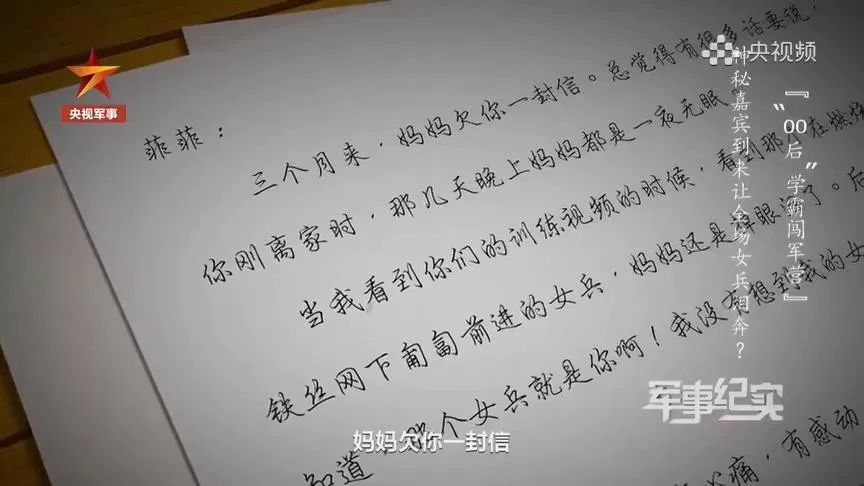 央视军事
央视频
『“00后”学霸闯军营』
神秘嘉宾到来让全场女兵泪奔？
菲菲：
三个月来，妈妈欠你一封信。总觉得有很多话要说，
你刚离家时，那几天晚上妈妈都是一夜无眠。
当我看到你们的训练视频的时候，看到那个在燃烧
铁丝网下匍匐前进的女兵，妈妈还是掉眼泪了。后
知道，那个女兵就是你啊！我没有想到我的女
心痛，有感动
军事纪实
妈妈欠你一封信